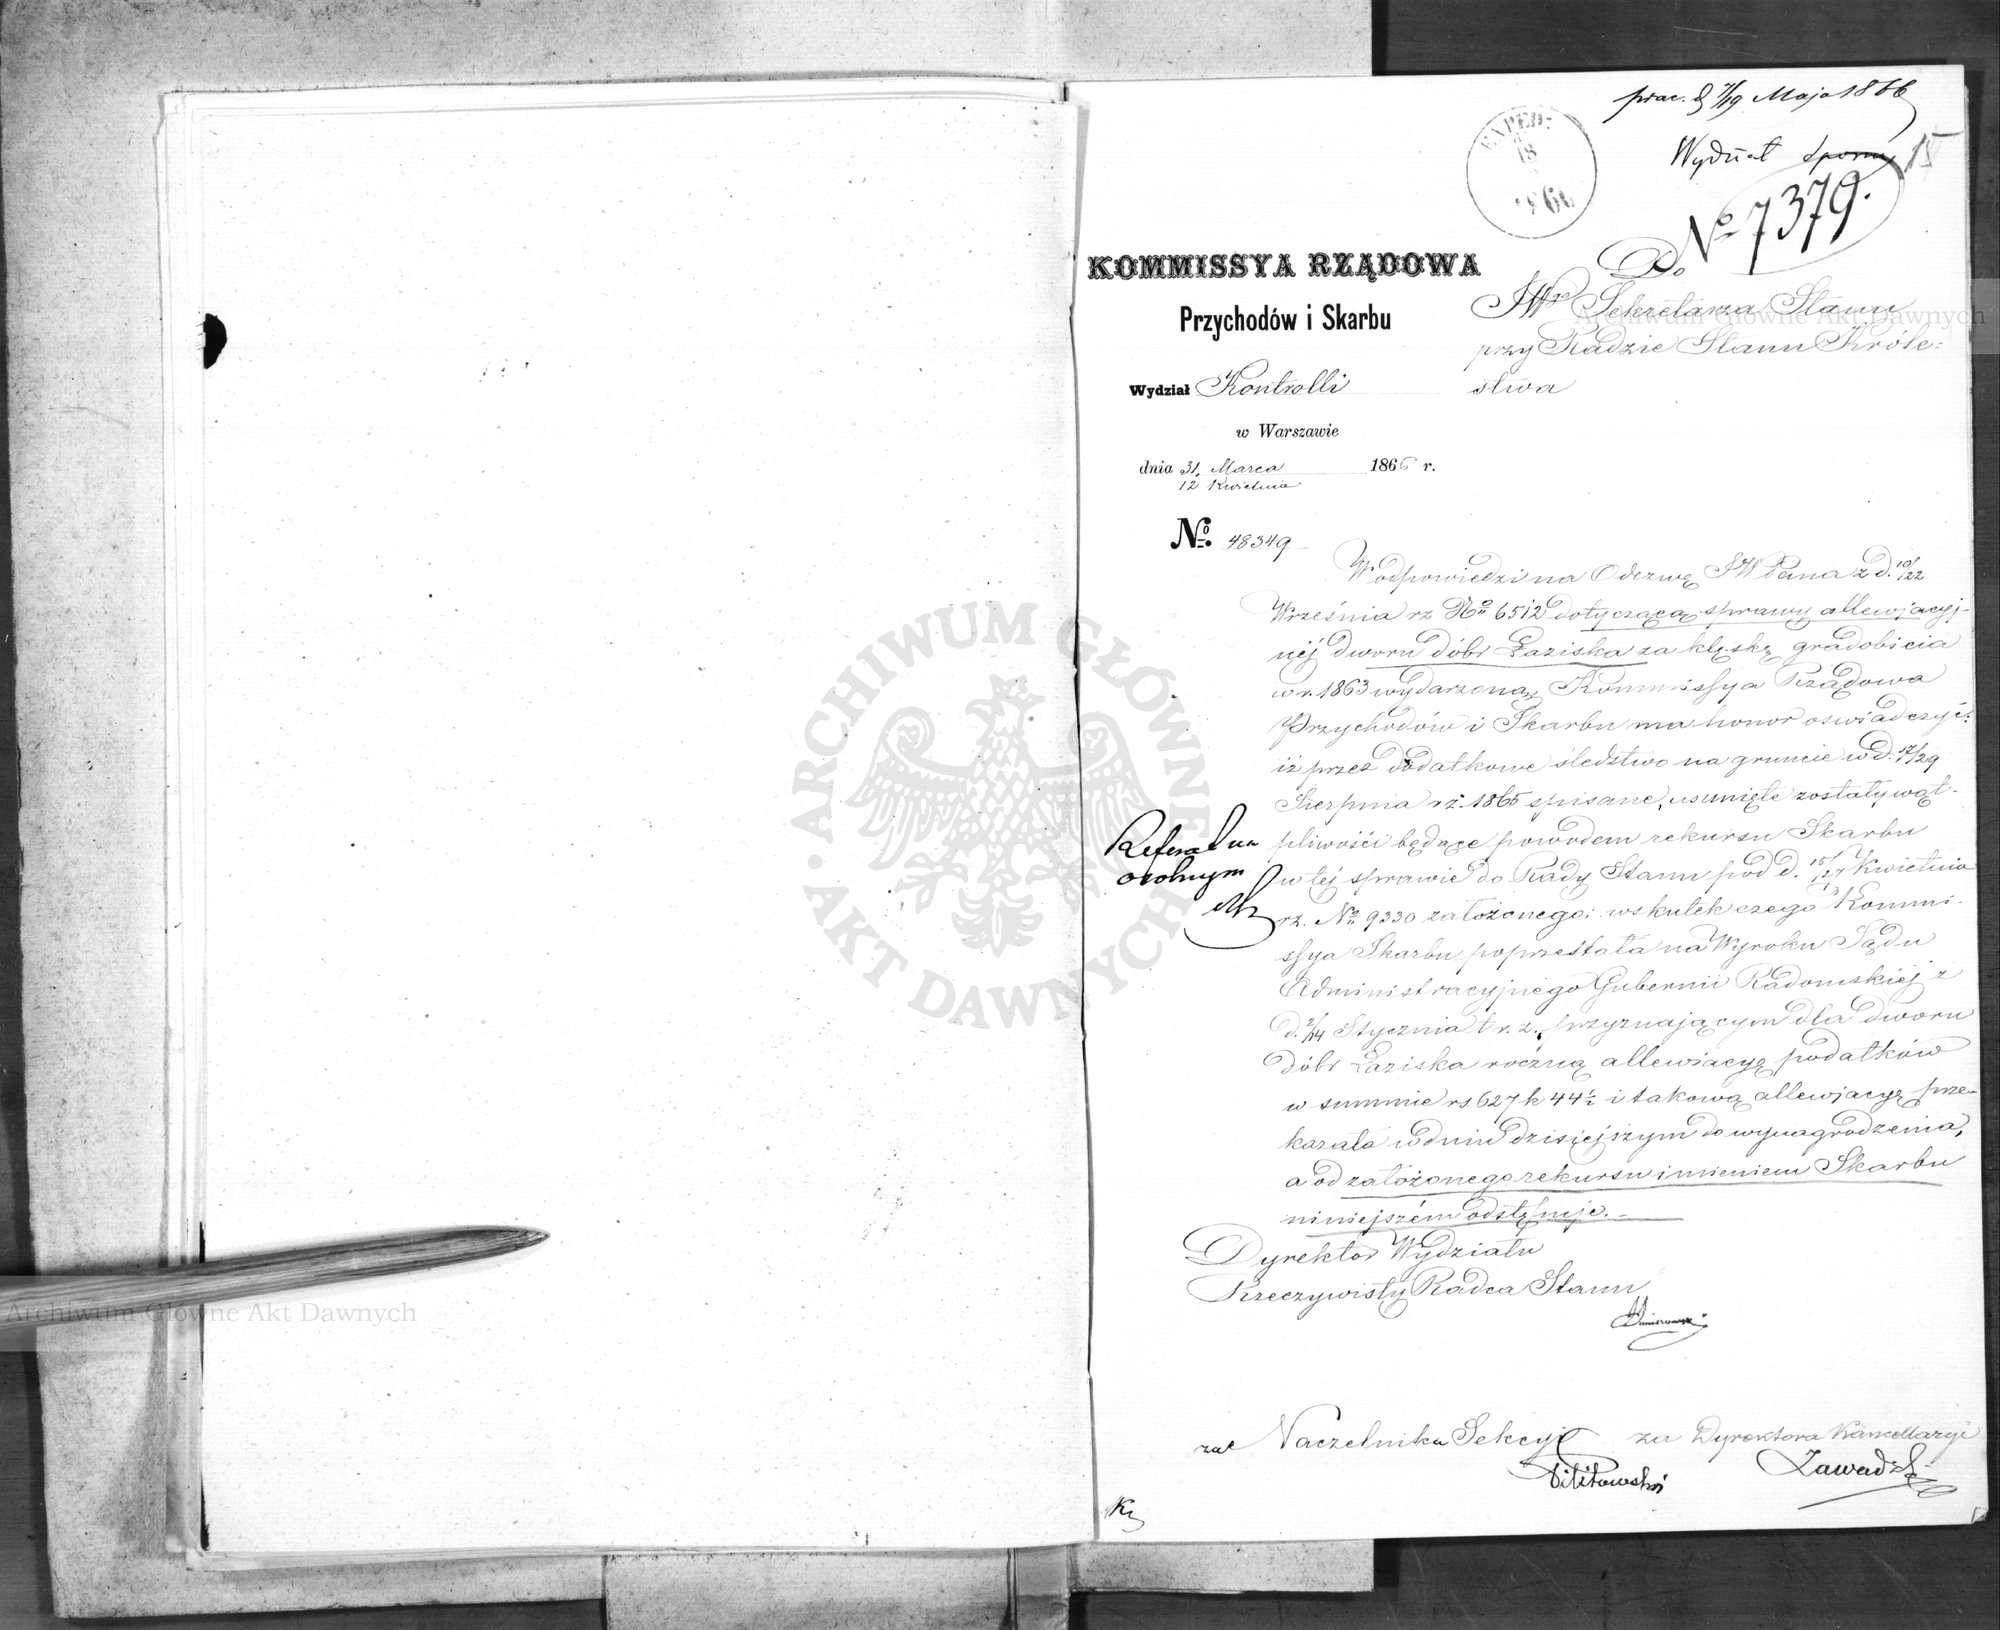 prac. d 7/19 Maja 1866
Wydział Sporny
15
EXPED:
18
1866
No 7379.
KOMMISSYA RZĄDOWA
Przychodów i Skarbu
Do
JW Sekretarza Stanu
przy Radzie Stanu Króle=
stwa
Wydział Kontrolli
w Warszawie
dnia 31. Marca 1866 r.
12 Kwietnia
No. 48349
W odpowiedzi na Odezwę JW Pana z d. 10/22
Września rz No 6512 dotyczącą sprawy allewjacyj-
néj dworu dóbr Łaziska za klęskę gradobicia
w r. 1863 wydarzoną, Kommissya Rządowa
Przychodów i Skarbu ma honor oswiadczyć:
iż przez dodatkowe śledztwo na gruncie w d. 17/29
Sierpnia rż. 1865 spisane, usunięte zostały wąt-
pliwości będące powodem rekursu Skarbu
w téj sprawie do Rady Stanu pod d. 15/27 Kwietnia
rz. No 9330 założonego; wskutek czego Kommi-
ssya Skarbu poprzestała na Wyroku Sądu
Administracyjnego Gubernii Radomskiéj z
d. 2/14 Stycznia t. r. z. przyznającym dla dworu
dóbr Łaziska roczną allewiacyę podatków
w summie rs 627 k 44½ i takową allewjacyę prze-
kazała w dniu dzisiejszym do wynagrodzenia,
a od założonego rekursu imieniem Skarbu
niniejszém odstępuje. -
Referat na
osobnym
Dyrektor Wydziału
Rzeczywisty Radca Stanu
za Naczelnika Sekcyi
za Dyrektora Kancellaryi
Zawadzki
Archiwum Główne Akt Dawnych
Archiwum Główne Akt Dawnych
ARCHIWUM GŁÓWNE AKT DAWNYCH